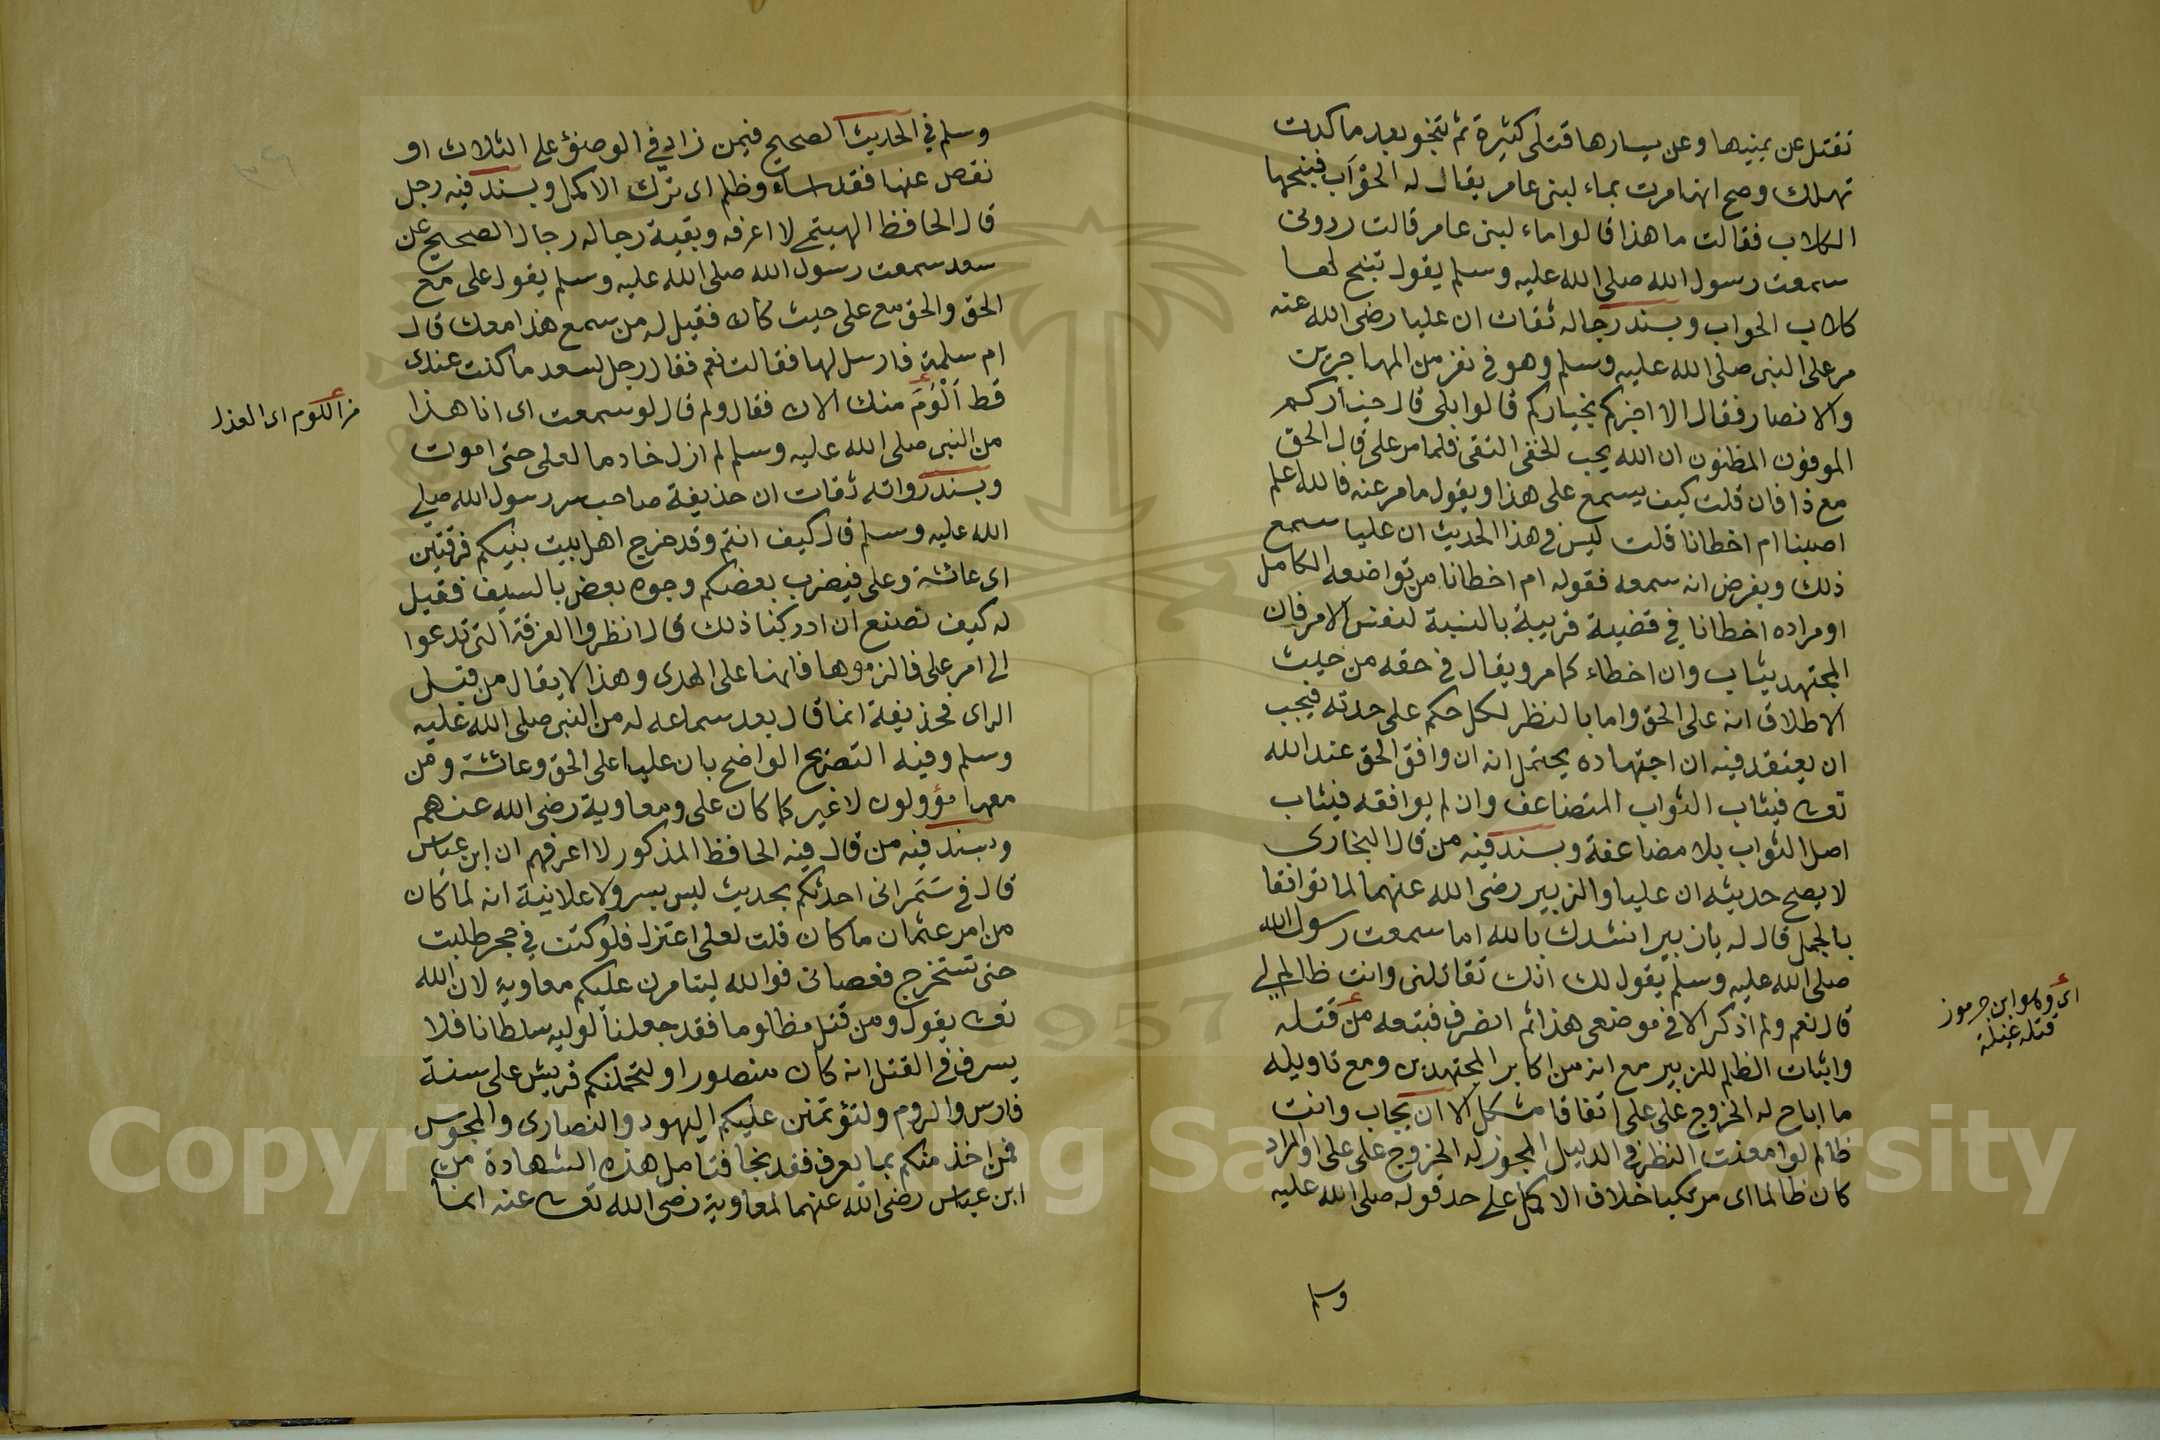 تقتل عن يمينها وعن يسارها قتلى كثيرة ثم تنجو بعد ما كدت
تهلك وصح انها مرت بماء لبنى عامر يقال له الحَوْأَب فنبحتها
الكلاب فقالت ما هذا قالوا ماء لبنى عامر قالت ردونى
سمعت رسول الله صلى الله عليه وسلم يقول تنبح لها
كلاب الحواب وبسند رجاله ثقات ان عليا رضى الله عنه
مر على النبى صلى الله عليه وسلم وهو فى نفر من المهاجرين
والانصار فقال الا اخبركم بخياركم قالوا بلى قال خياركم
الموفون المطيبون ان الله يحب الخفى التقى فلما مر على قال الحق
مع ذا فان قلت كيف يسمع على هذا ويقول ما مر عنه فالله اعلم
اصبنا ام اخطانا قلت ليس فى هذا الحديث ان عليا سمع
ذلك وبفرض انه سمعه فقوله ام اخطانا من تواضعه الكامل
او مراده اخطانا في قضية قريبة بالنسبة لنفس الامر فان
المجتهد يثاب وان اخطاء كما مر ويقال فى حقه من حيث
الاطلاق انه على الحق واما بالنظر لكل حكم على حدته فيجب
ان يعتقد فيه ان اجتهاده يحتمل انه ان وافق الحق عند الله
تعه فيثاب الثواب المتضاعف وان لم يوافقه فيثاب
اصل الثواب بلا مضاعفة وبسند فيه من قال البخارى
لا يصح حديثه ان عليا والزبير رضى الله عنهما لما توافقا
بالجمل قال له يازبير انشدك بالله اما سمعت رسول الله
صلى الله عليه وسلم يقول لك انك تقاتلنى وانت ظالم لي
قال نعم ولم اذكر الا فى موضعى هذا ثم انصرف فتبعه من قتله
اى وهو ابن جرموز
قتله غيلة
واثبات الظلم للزبير مع انه من اكابر المجتهدين ومع تاويله
ما اباح له الخروج على على اتفاقا مشكل الا ان يجاب وانت
ظالم لو امعنت النظر فى الدليل المجوز له الخروج على على او المراد
كان ظالما اى مرتكبا خلاف الاكمل على حد قوله صلى الله عليه
وسلم
وسلم في الحديث الصحيح فيمن زاد في الوضؤ على الثلاث او
نقص عنها فقد اساء وظلم اى ترك الاكمل وبسند فيه رجل
قال الحافظ الهيتمى لا اعرفه وبقية رجاله رجال الصحيح عن
سعد سمعت رسول الله صلى الله عليه وسلم يقول على مع
الحق والحق مع على حيث كان فقيل له من سمع هذا معك قال
ام سلمة فارسل لها فقالت نعم فقال رجل لسعد ما كنت عندى
قط اَلْوَمَ منك الان فقال ولم قال لو سمعت اى انا هذا
من اللوم اى العذل
من النبى صلى الله عليه وسلم لم ازل خادما لعلى حتى اموت
وبسند رواته ثقات ان حذيفة صاحب سر رسول الله صلى
الله عليه وسلم قال كيف انتم وقد خرج اهل بيت نبيكم فرقتين
اى عائشة وعلى فيضرب بعضكم وجوه بعض بالسيف فقيل
له كيف تصنع ان ادركنا ذلك قال انظروا الفرقة التى تدعوا
الى امر على فالزموها فانها على الهدى وهذا لا يقال من قبل
الراى فحذيفة انما قال بعد سماعه له من النبى صلى الله عليه
وسلم وفيه التصريح الواضح بان عليا على الحق وعائشة ومن
معها مؤولون لا غير كما كان على ومعاوية رضى الله عنهم
وبسند فيه من قال فيه الحافظ المذكور لا اعرفهم ان ابن عباس
قال فى سَمَر انى احدثكم بحديث ليس بسر ولا علانية انه لما كان
من امر عثمان ما كان قلت لعلى اعتزل فلو كنت في حجر طلبت
حتى تستخرج فعصانى فوالله ليتامرن عليكم معاوية لان الله
تعه يقول ومن قتل مظلوما فقد جعلنا لوليه سلطانا فلا
يسرف فى القتل انه كان منصورا ولتحملنكم قريش على سنة
فارس والروم ولتؤتمنن عليكم اليهود والنصارى والمجوس
فمن اخذ منكم بما يعرف فقد نجا فتامل هذه الشهادة من
ابن عباس رضى الله عنهما لمعاوية رضى الله تعه عنه انما
Copyright © King Saud University
1957